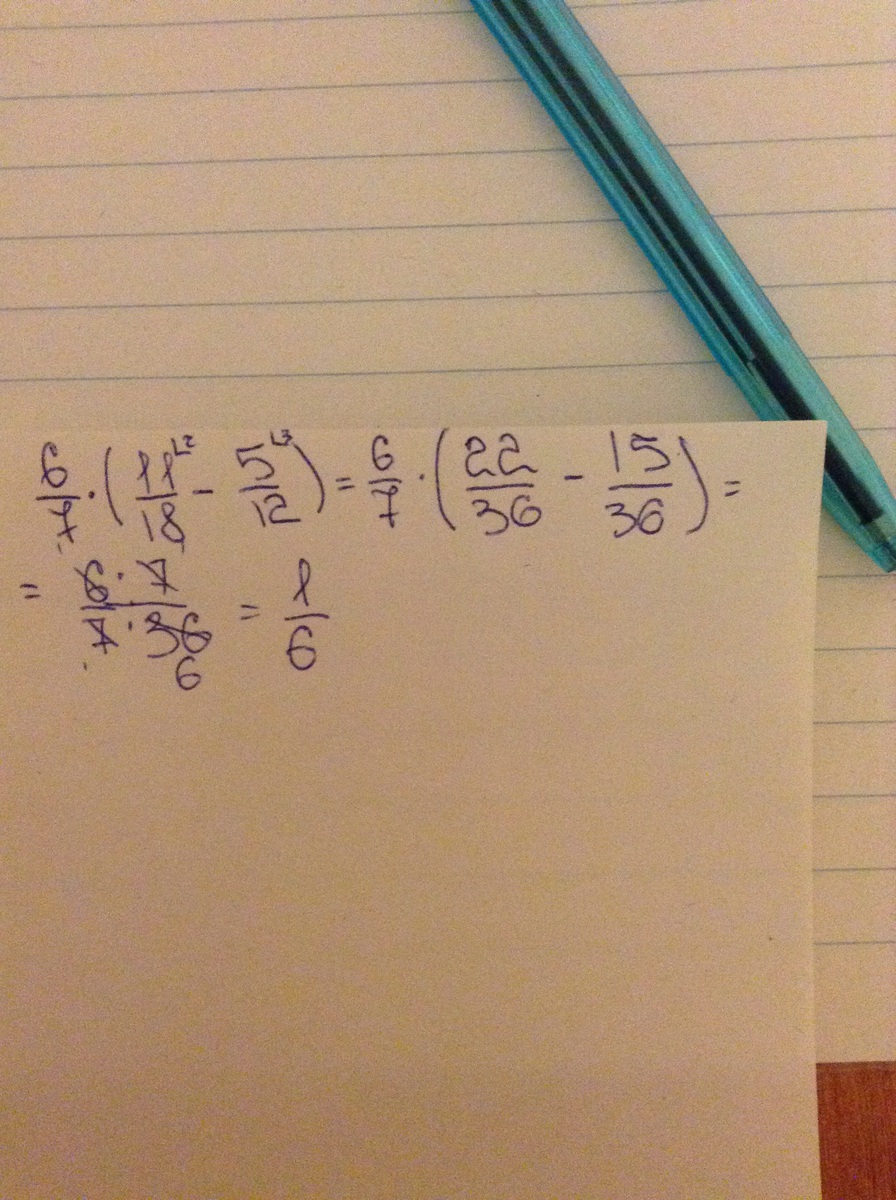 6/7 · (11/18 ⌊2 − 5/12 ⌊3) = 6/7 · (22/36 − 15/36) =
= 6 · 7 / 7 · 36 6 = 1/6